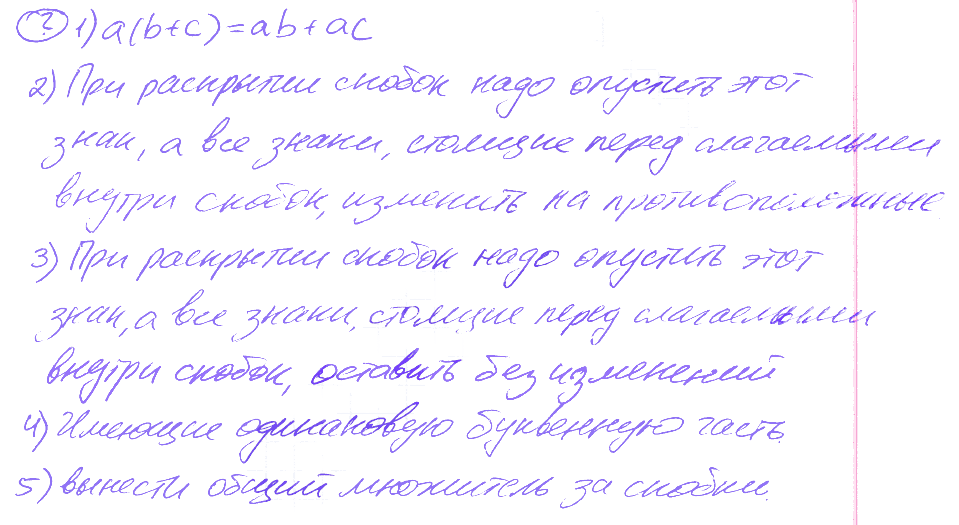 ? 1) a(b+c)=ab+ac
2) При раскрытии скобок надо опустить этот
знак, а все знаки, стоящие перед слагаемыми
внутри скобок, изменить на противоположные
3) При раскрытии скобок надо опустить этот
знак, а все знаки, стоящие перед слагаемыми
внутри скобок, оставить без изменений
4) Имеющие одинаковую буквенную часть.
5) вынести общий множитель за скобки.